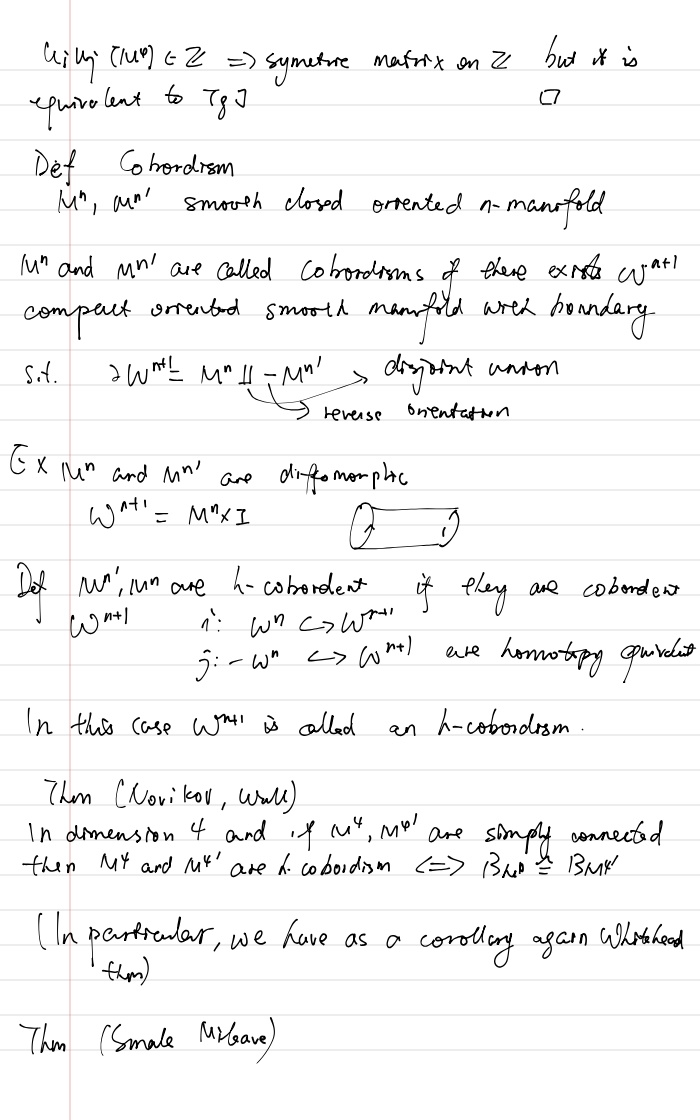 (M⁴) ∈ ℤ => symetric matrix on ℤ but it is
equivalent to [g] □
Def Cobordism
Mⁿ, Mⁿ' smooth closed oriented n-manifold
Mⁿ and Mⁿ' are called Cobordisms if there exists Wⁿ⁺¹
compact oriented smooth manifold with boundary
s.t. ∂Wⁿ⁺¹ = Mⁿ ⨿ -Mⁿ' → disjoint union
→ reverse orientation
Ex Mⁿ and Mⁿ' are diffomorphic
Wⁿ⁺¹ = Mⁿ×I
Def Mⁿ', Mⁿ are h-cobordent if they are cobordent
Wⁿ⁺¹ i: Wⁿ ↪ Wⁿ⁺¹
j: -Wⁿ ↪ Wⁿ⁺¹ are homotopy equivalent
In this case Wⁿ⁺¹ is called an h-cobordism.
Thm (Novikov, Wall)
In dimension 4 and if M⁴, M⁴' are simply connected
then M⁴ and M⁴' are h-cobordism <=> B_M⁴ ≅ B_M⁴'
(In particular, we have as a corollary again Whitehead
thm)
Thm (Smale